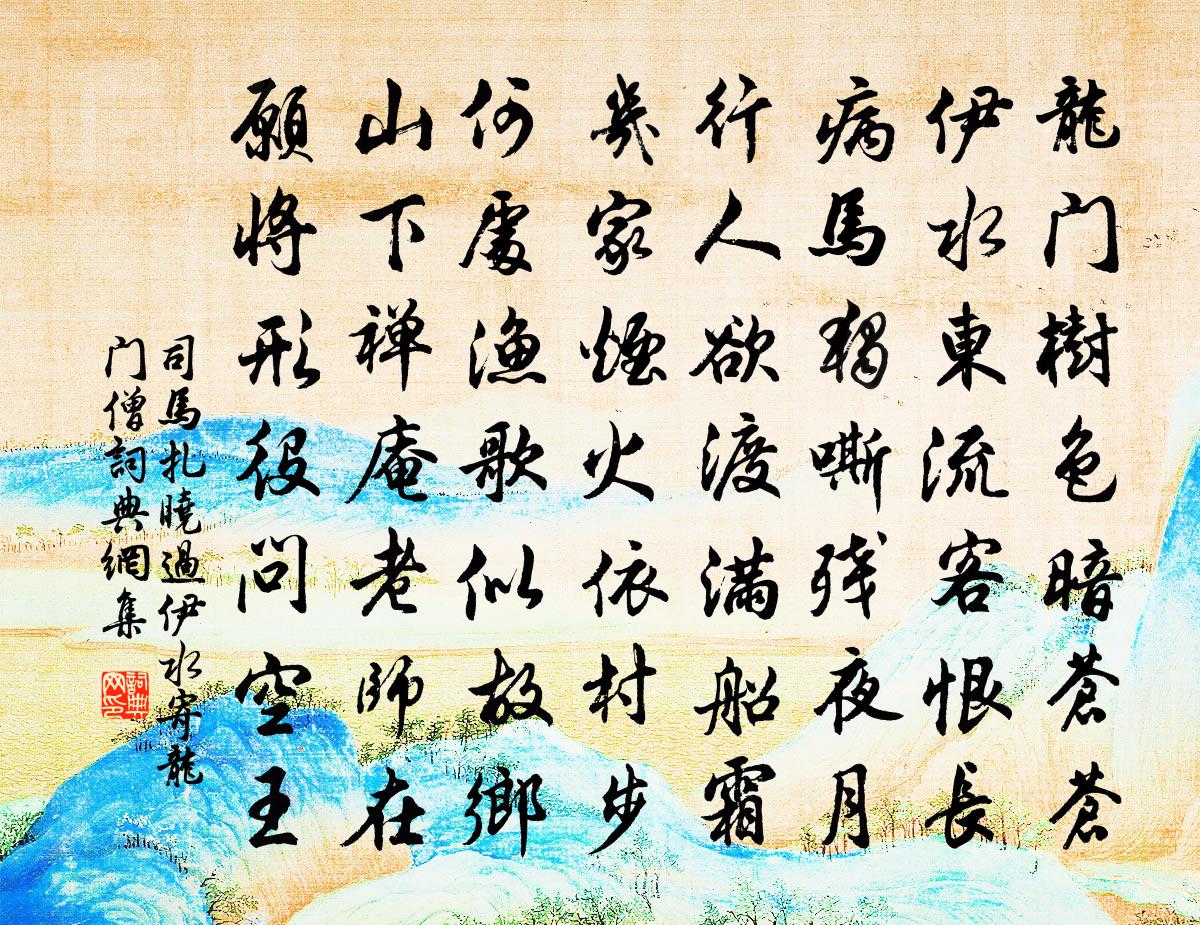 龍门樹色暗蒼蒼
伊水東流客恨長
病馬獨嘶残夜月
行人欲渡滿船霜
幾家煙火依村步
何處漁歌似故鄉
山下禅庵老師在
願将形役问空王
司馬扎曉過伊水寄龍
门僧詞典網集
詞典
网印